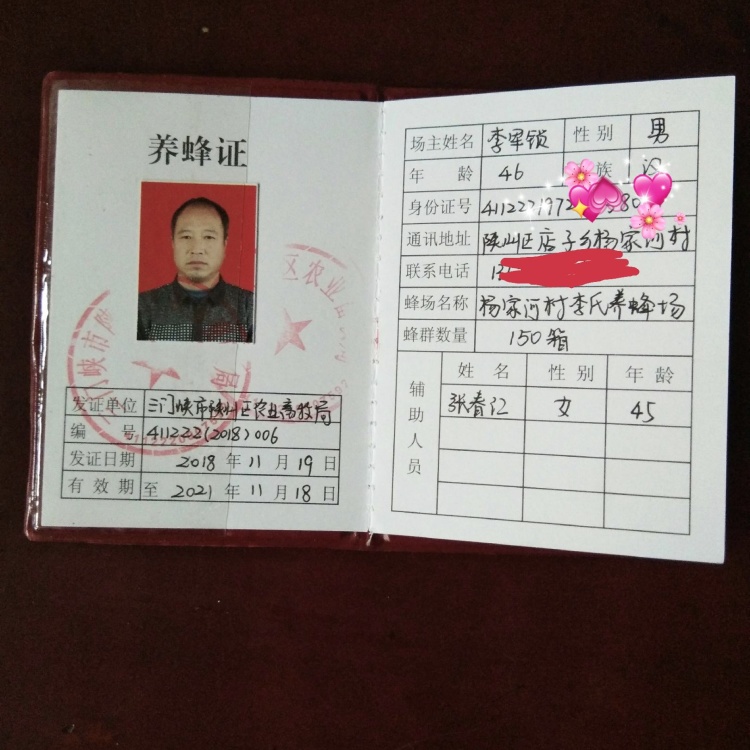 养蜂证
发证单位 三门峡市陕州区农业畜牧局
编 号 411222(2018)006
发证日期 2018 年 11 月 19 日
有 效 期 至 2021 年 11 月 18 日
场主姓名 李军锁 性 别 男
年 龄 46 族 汉
身份证号 411222197
通讯地址 陕州区店子乡杨家河村
联系电话
蜂场名称 杨家河村李氏养蜂场
蜂群数量 150箱
辅助人员
姓 名 性 别 年 龄
张春仁 女 45